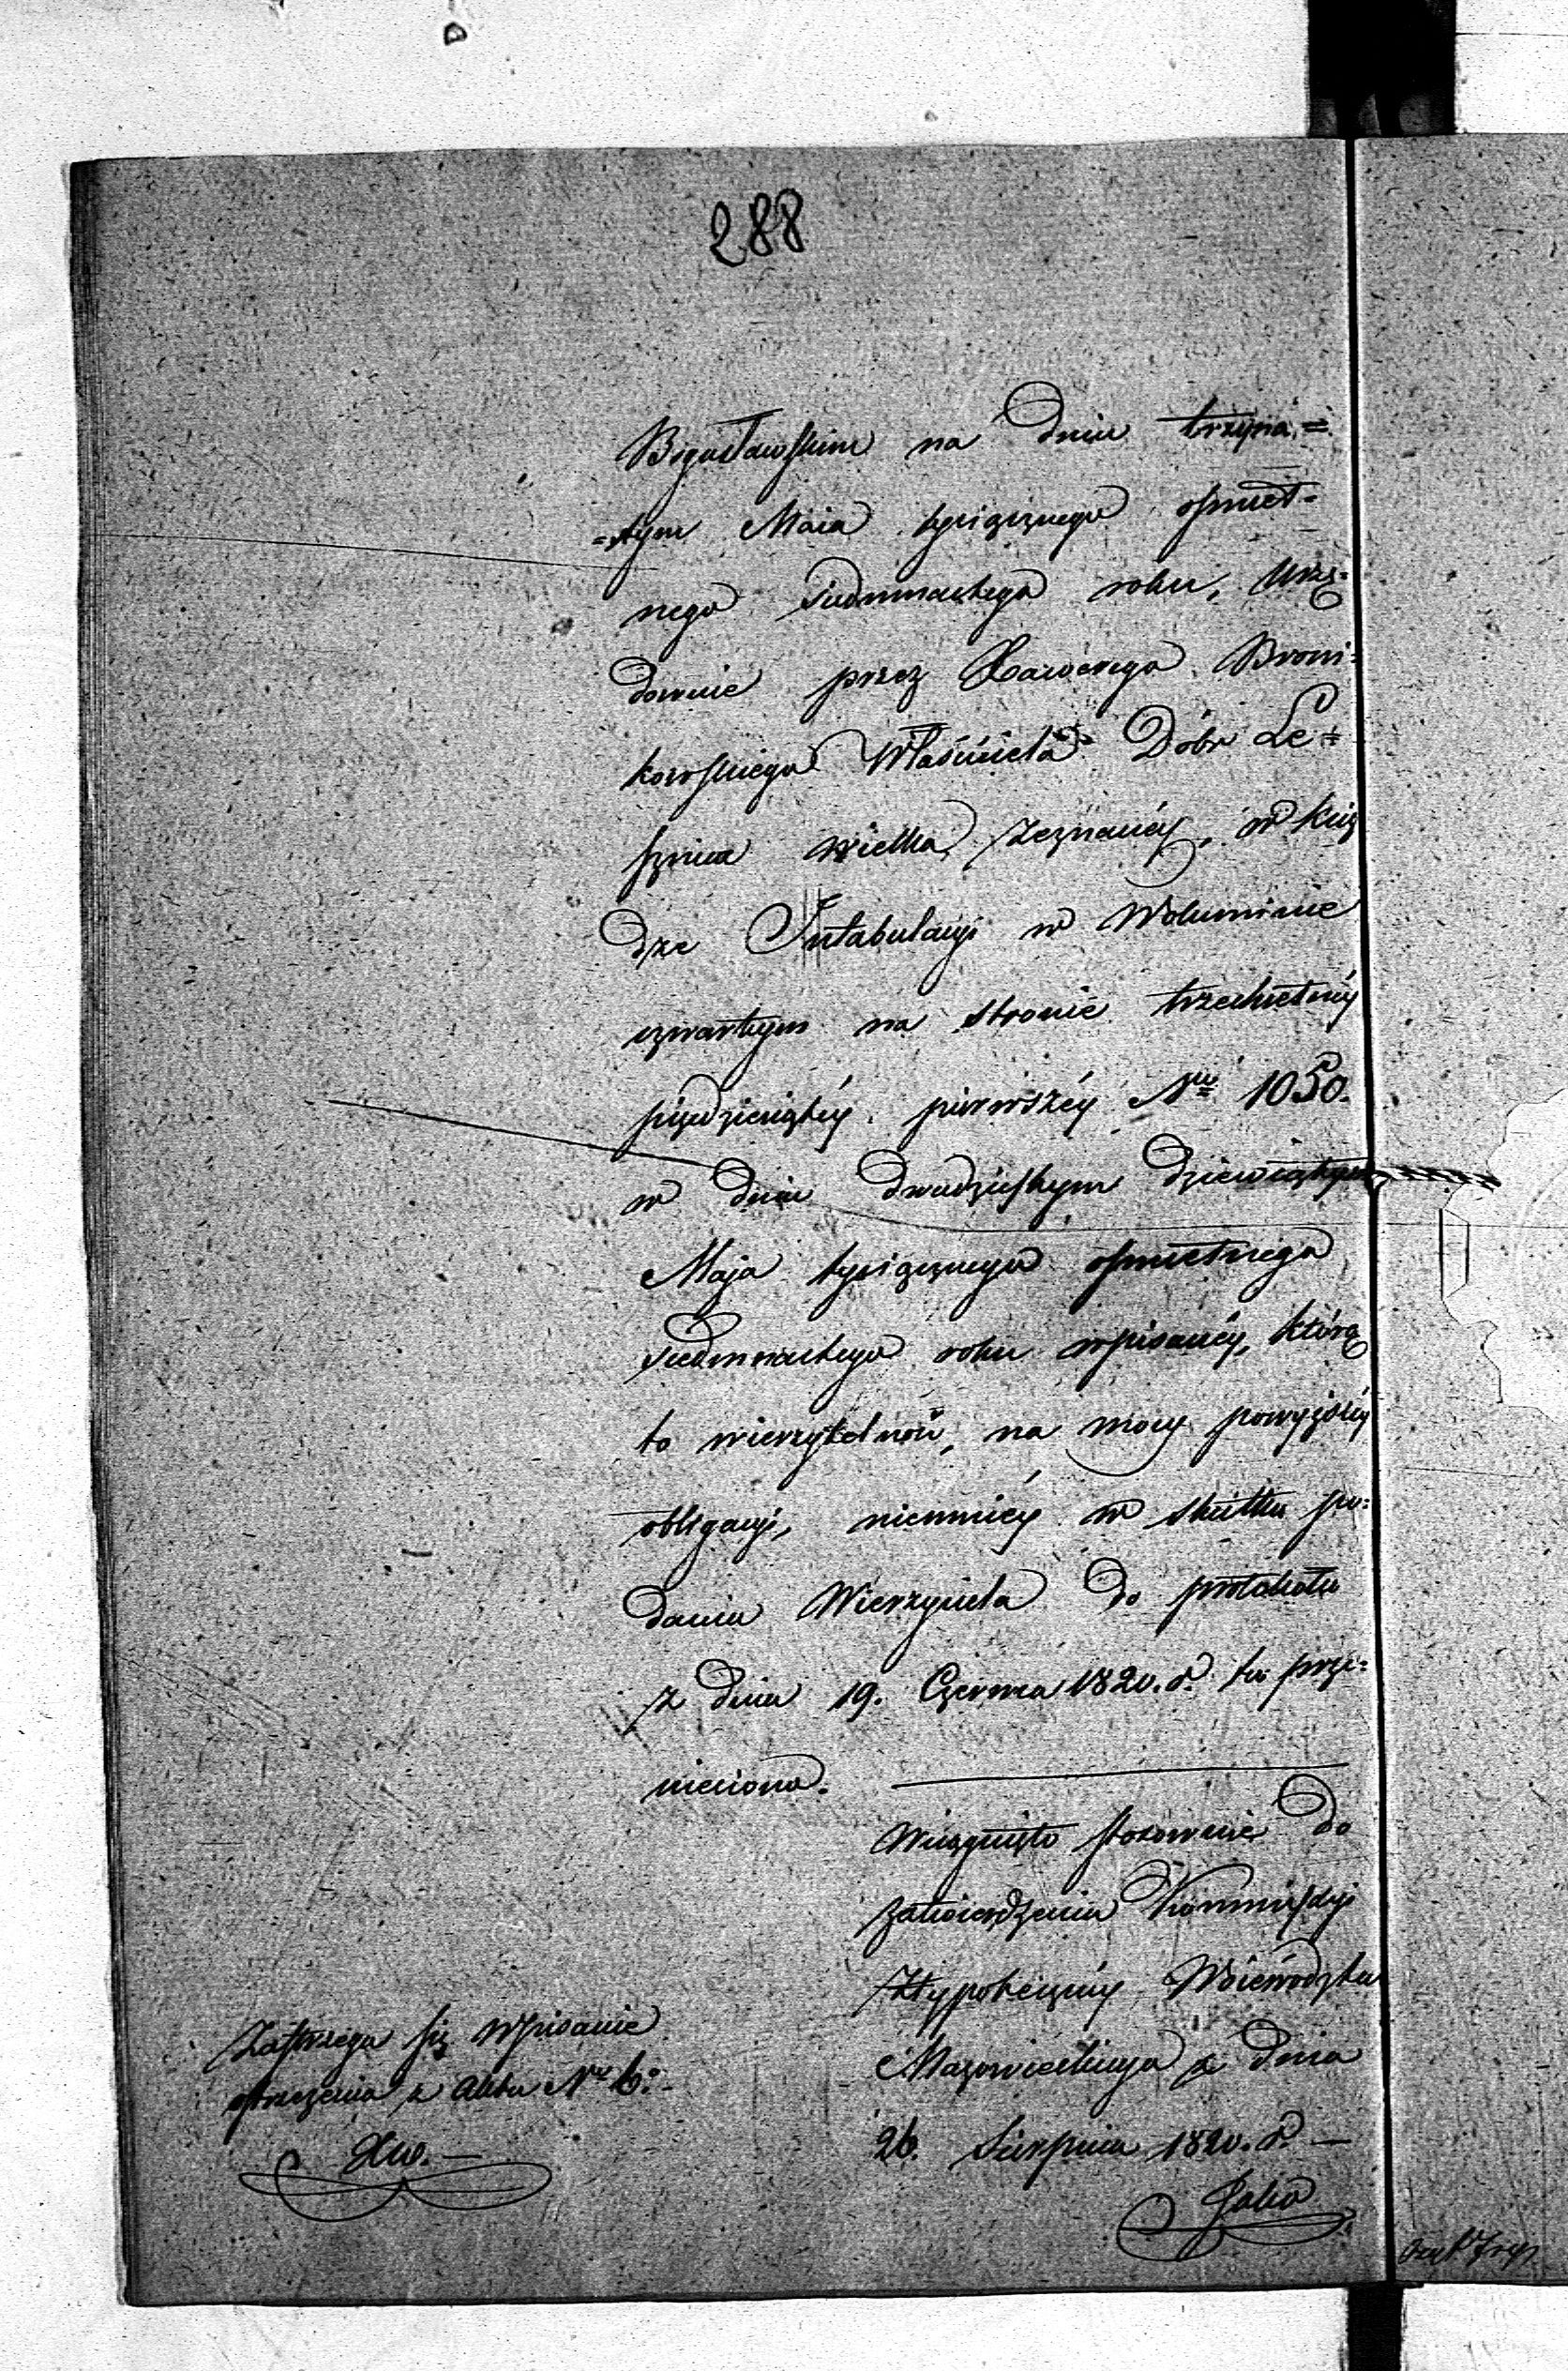 288
Bogusławskim na dniu trzyna=
=stym Maia tysiącznego osmset=
nego siedmnastego roku, Urzę=
downie przez Xawerego Broni=
kowskiego Właściciela Dóbr Le=
sznica wielka zeznanéy, w Księ
dze Intabulacyi w Woluminie
czwartym na stronie trzechsetnéy
pięćdziesiątéy pierwszéy Nr̲o̲ 1050.
w dniu dwudziestym dziewiątym
Maja tysiącznego osmsetnego
siedmnastego roku wpisanéy, która
to wierzytelność, na mocy powyższéy
obligacyi, niemniéy w skutku po=
dania Wierzyciela do protokółu
z dnia 19. Czerwca 1820. r. tu prze=
niesiona.
Wciągnięto stosownie do
zatwierdzenia Kommissyi
Hypotecznéy Woiewództwa
Mazowieckiego z dnia
26. Sierpnia 1820. r. —
Zastrzega się wpisanie
ostrzeżenia z Aktu Nr 6. -